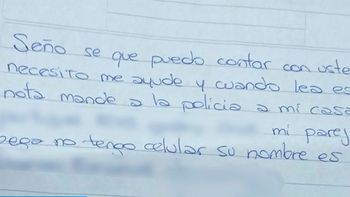 Seño se que puedo contar con uste
necesito me ayude y cuando lea es
nota mande a la policia a mi casa
mi parej
pega no tengo celular su nombre es